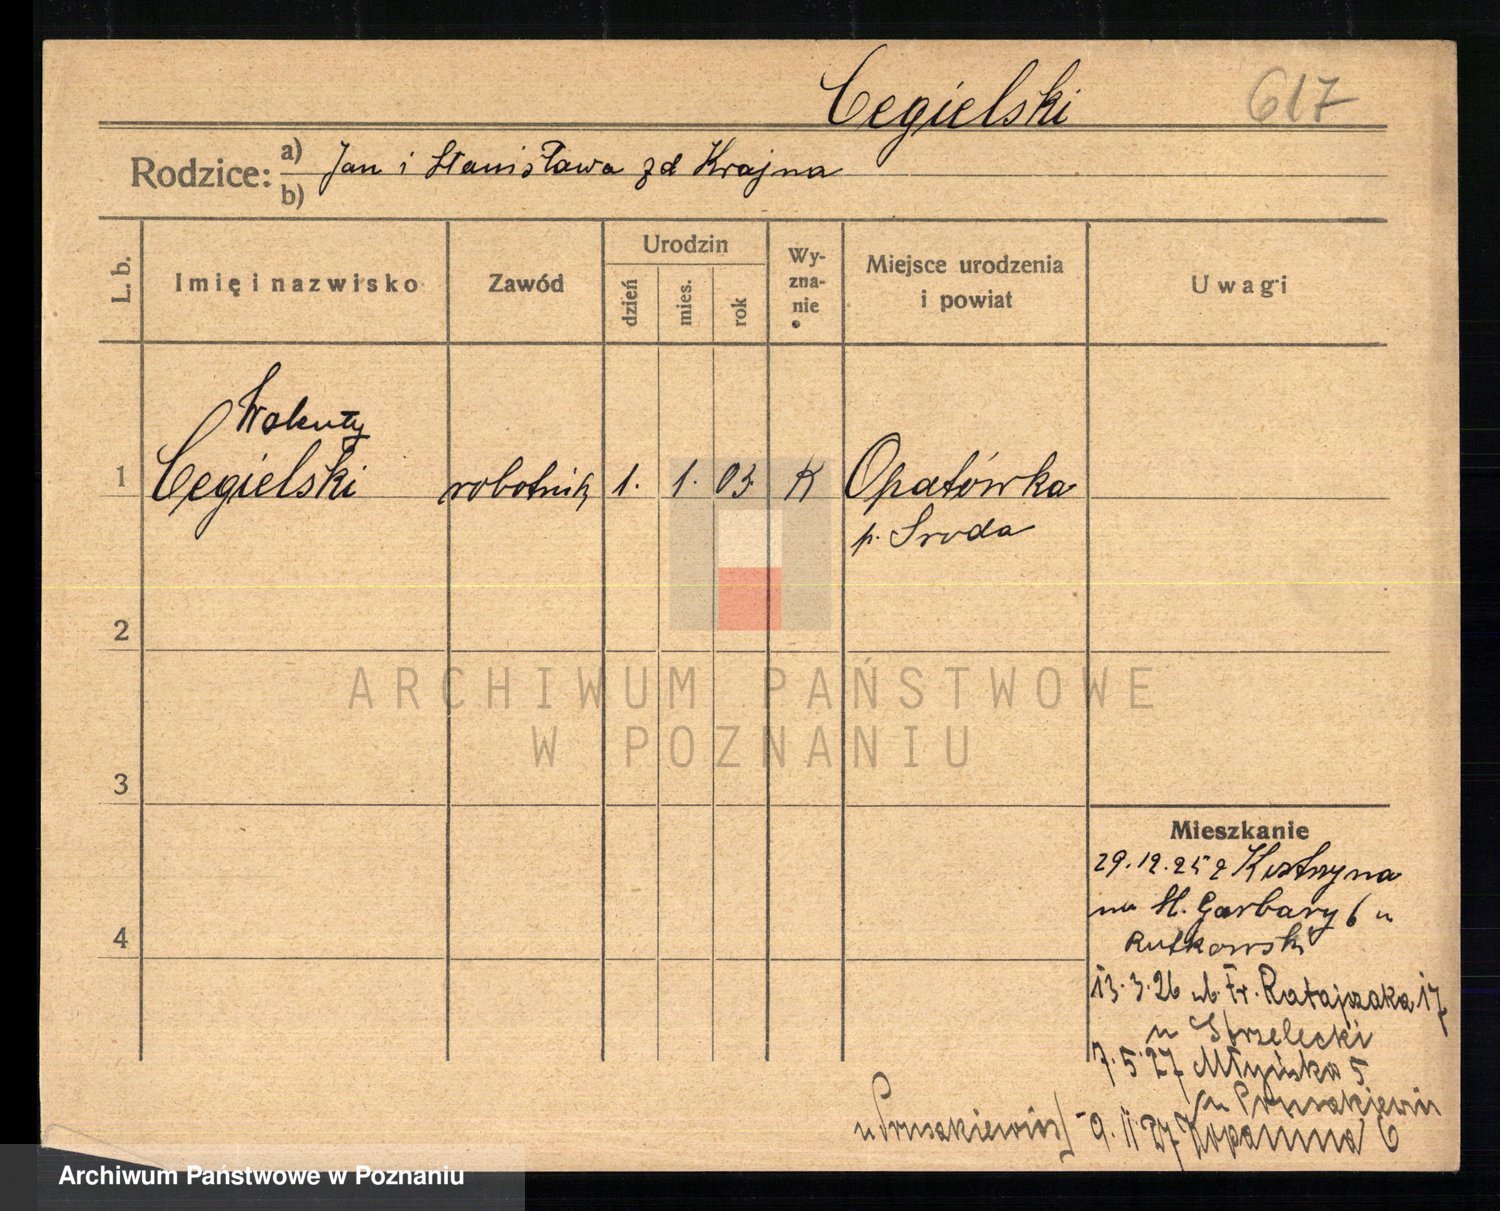 Cegielski 617
Rodzice: a) Jan i Stanisława zd Krajna
b)
L. b.
Imię i nazwisko
Zawód
Urodzin
dzień
mies.
rok
Wy-
zna-
nie
Miejsce urodzenia
i powiat
Uwagi
Walenty
1 Cegielski robotnik 1. 1. 03 K Opatówka
p. Sroda
2
3
4
Mieszkanie
29.12.25 z Kostrzyna
na St. Garbary 6 u
Rutkowski
13.3.26 ul. Fr. Ratajczaka 17
u Strzelecki
7.5.27 Młyńska 5
u Prusakiewicz
u Prusakiewicz 9.11.27 6
ARCHIWUM PAŃSTWOWE
W POZNANIU
Archiwum Państwowe w Poznaniu